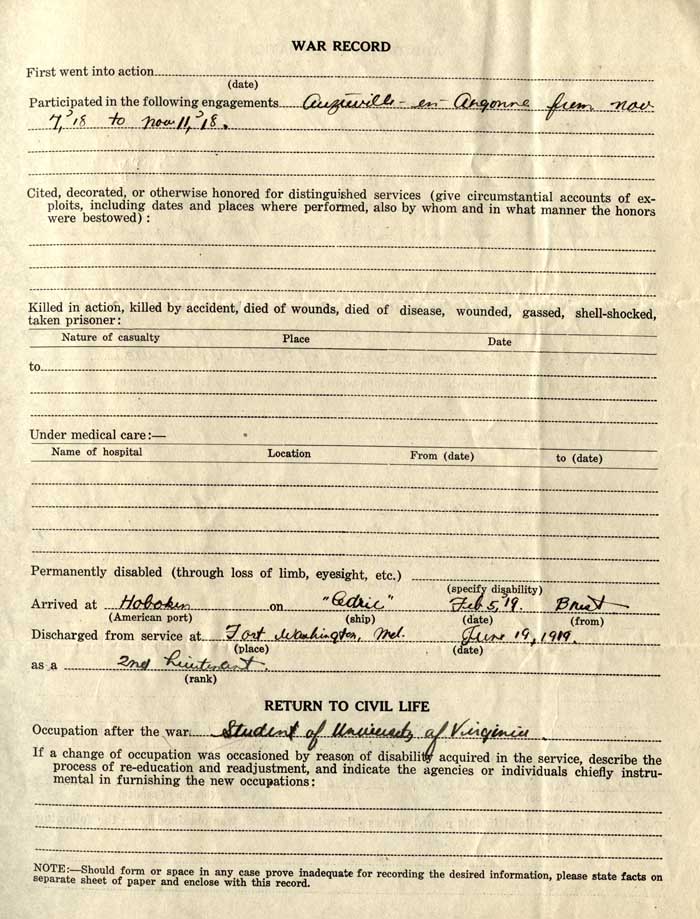 WAR RECORD
First went into action
(date)
Participated in the following engagements Auzeville-en-Argonne from nov
7, '18 to nov 11, '18.
Cited, decorated, or otherwise honored for distinguished services (give circumstantial accounts of ex-
ploits, including dates and places where performed, also by whom and in what manner the honors
were bestowed) :
Killed in action, killed by accident, died of wounds, died of disease, wounded, gassed, shell-shocked,
taken prisoner:
Nature of casualty Place Date
to
Under medical care:—
Name of hospital Location From (date) to (date)
Permanently disabled (through loss of limb, eyesight, etc.)
(specify disability)
Arrived at Hoboken on "Cedric" Feb 5, 19. Brest
(American port) (ship) (date) (from)
Discharged from service at Fort Washington, Md. June 19, 1919.
(place) (date)
as a 2nd Lieutenant.
(rank)
RETURN TO CIVIL LIFE
Occupation after the war Student of University of Virginia.
If a change of occupation was occasioned by reason of disability acquired in the service, describe the
process of re-education and readjustment, and indicate the agencies or individuals chiefly instru-
mental in furnishing the new occupations:
NOTE:—Should form or space in any case prove inadequate for recording the desired information, please state facts on
separate sheet of paper and enclose with this record.